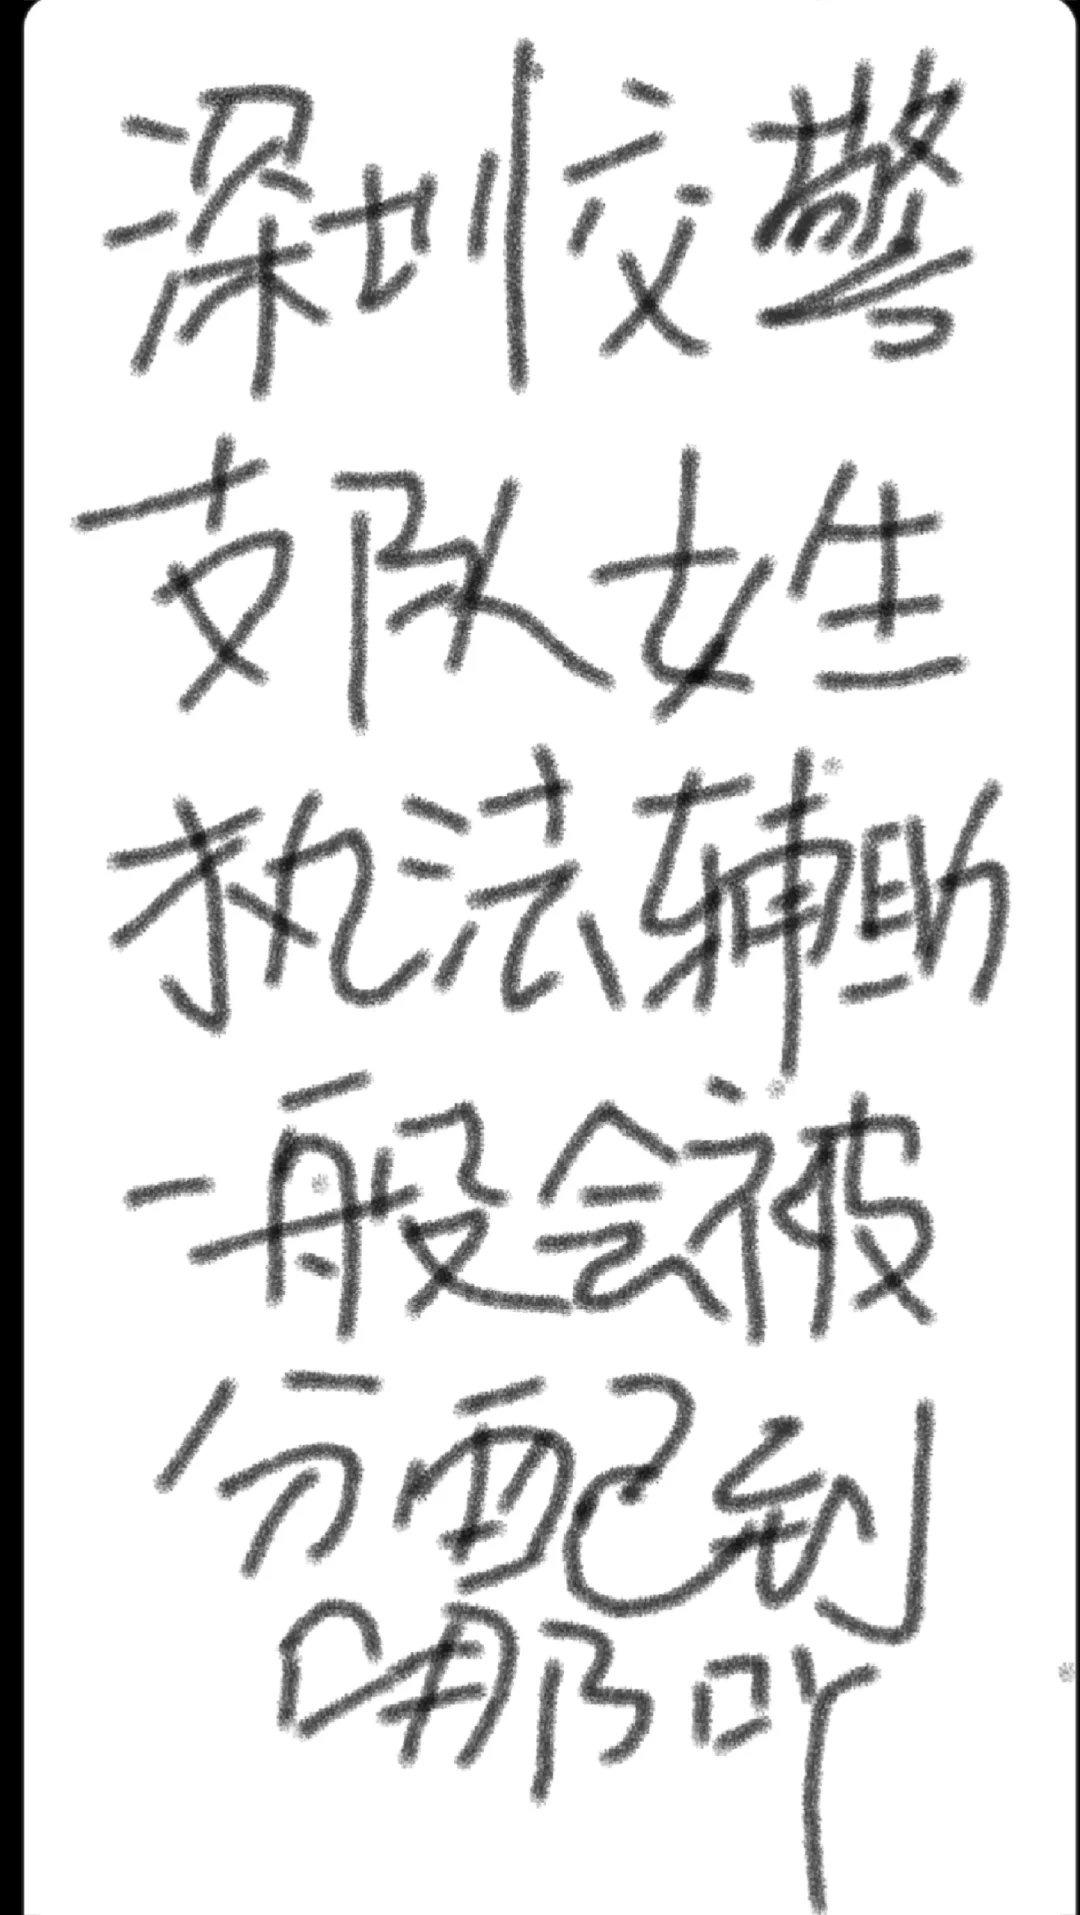 深圳交警
支队女生
执法辅助
一般会被
分配到
哪吖